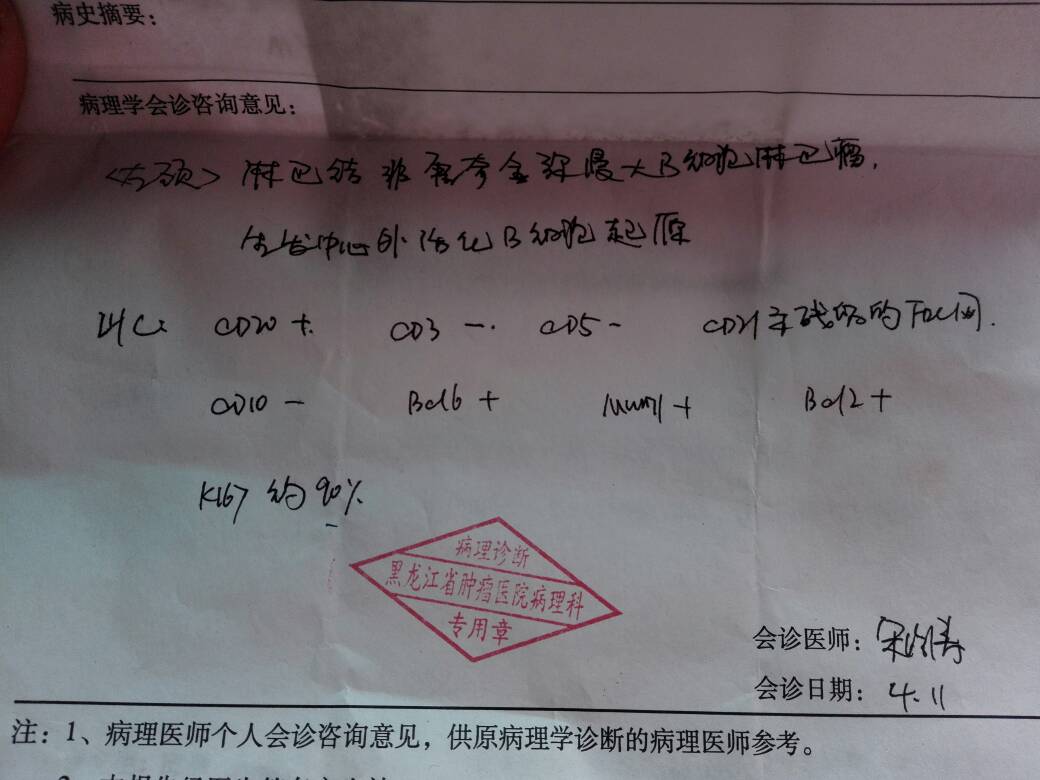 病史摘要:
病理学会诊咨询意见:
<右颈>淋巴结非霍奇金弥漫大B细胞淋巴瘤.
生发中心外活化B细胞起源
IHC: CD20 + CD3 - CD5 - CD21 示残留的FDC网.
CD10 - Bcl6 + Mum1 + Bcl2 +
Ki67 约90%
病理诊断
黑龙江省肿瘤医院病理科
专用章
会诊医师:
会诊日期: 4.11
注:1、病理医师个人会诊咨询意见,供原病理学诊断的病理医师参考。